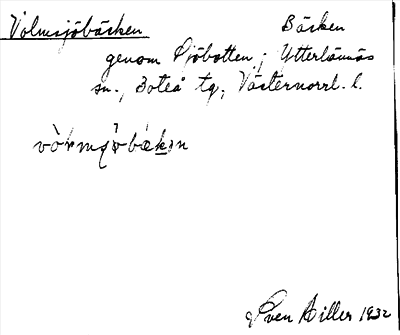 Volmsjöbäcken Bäcken
genom Sjöbotten; Ytterlännäs
sn., Boteå tg, Västernorrl. l.
Sven Hiller 1932